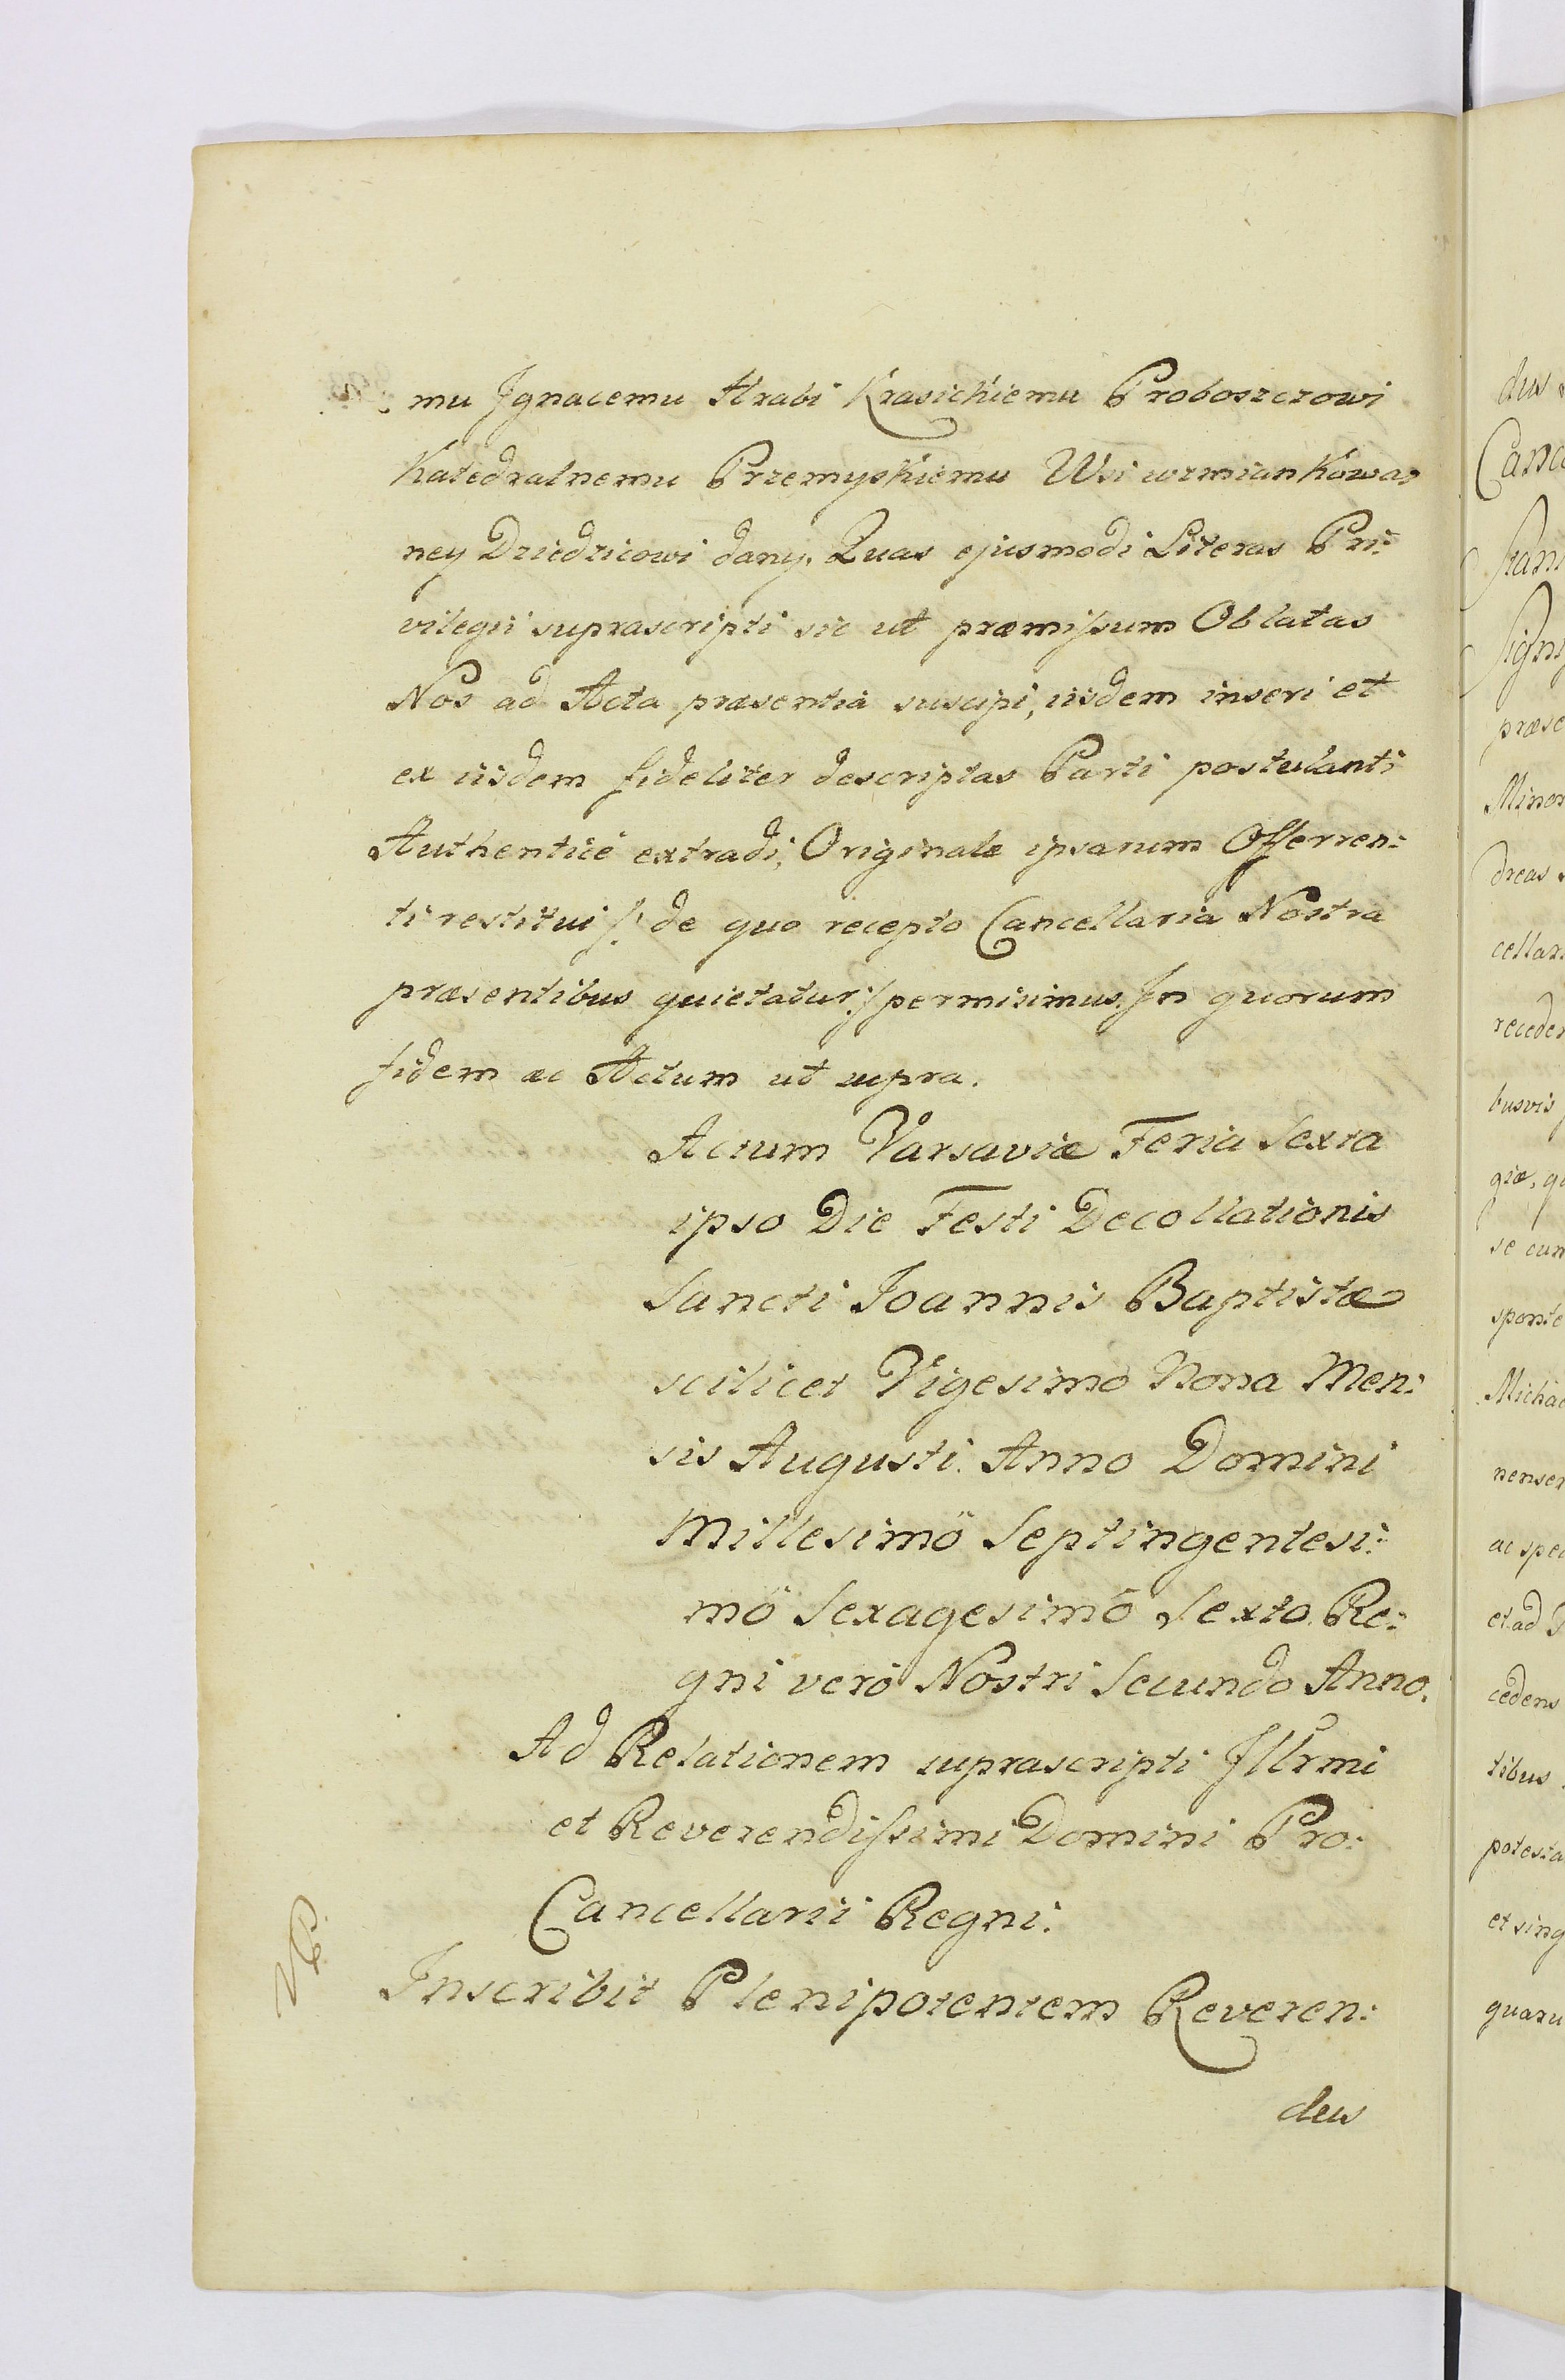 mu Jgnacemu Hrabi Krasickiemu Proboszczowi
Katedralnemu Przemyskiemu Wsi wzmiankowa:
ney Dziedzicowi dany. Quas ejusmodi Literas Pri:
vilegii suprascripti sic ut præmissum Oblatas
Nos ad Acta præsentia suscipi, iisdem inseri et
ex iisdem fideliter descriptas Parti postulanti
Authenticè extradi, Originale ipsarum Offerren:
ti restitui /: de quo recepto Cancellaria Nostra
præsentibus quietatur :/ permisimus. Jn quorum
fidem ac Actum ut supra.
Actum Varsaviæ Feria Sexta
ipso Die Festi Decollationis
Sancti Joannis Baptistæ
scilicet Vigesimo Nona Men:
sis Augusti. Anno Domini
Millesimö Septingentesi:
mö Sexagesimö Sexto. Re:
gni verö Nostri Secundo Anno.
Ad Relationem suprascripti Jllrmi
et Reverendissimi Domini Pro:
Cancellarii Regni.
Inscribit Plenipotentem Reveren:
dus
dus
Canc
præse
Minor
dreas
cellar
recede
busvis
giæ, q
se cum
sponte
Michae
nensem
ac spec
et ad
cedens
tibus
potesta
et sing
quaru